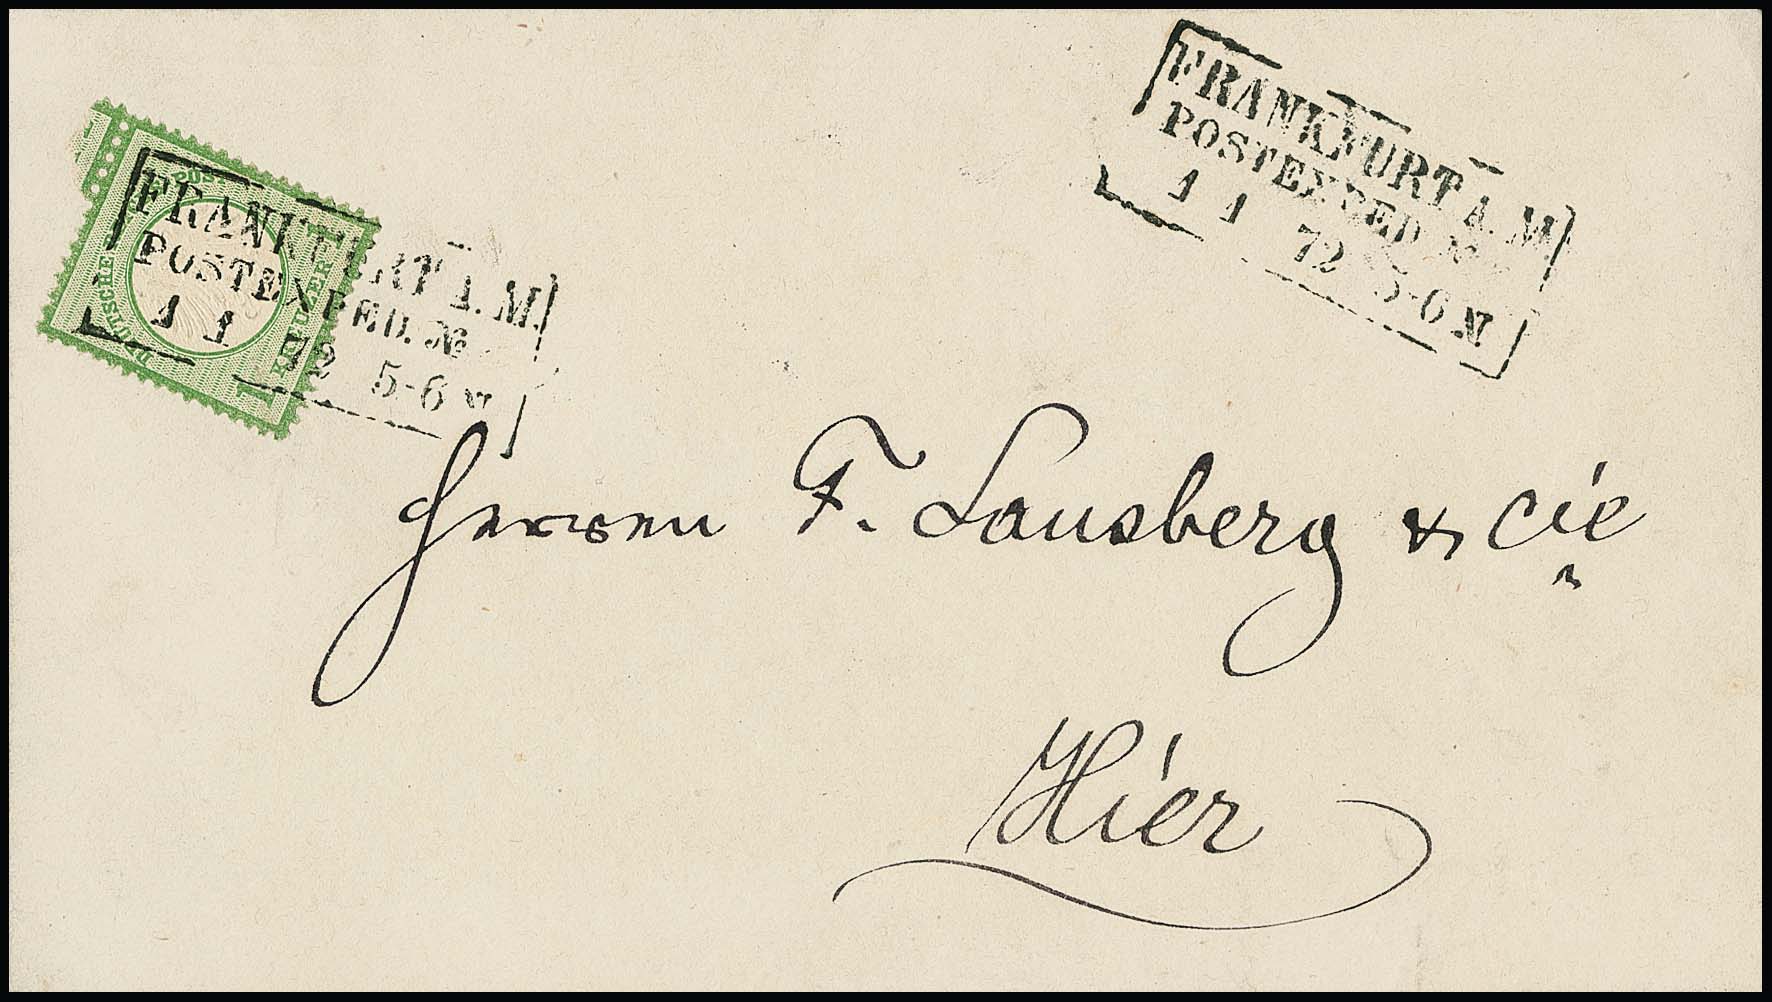 FRANKFURT A. M.
POSTEXPED. No
1 1 72 5-6 N
DEUTSCHE POST KREUZER
1
FRANKFURT A. M.
POSTEXPED. No
1 1 72 5-6 N
Herren F. Lansberg & Cie
Hier